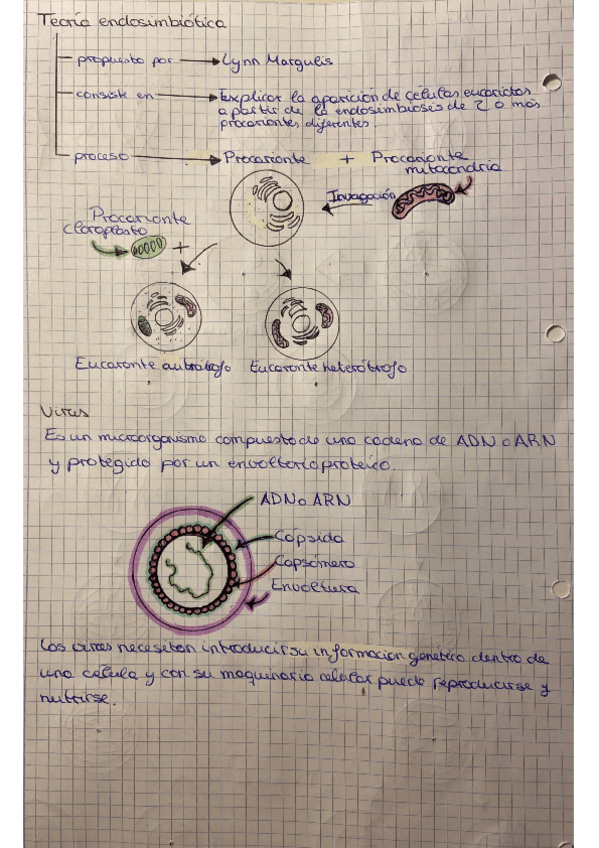 Teoría endosimbiótica
propuesto por → Lynn Margulis
consiste en → Explicar la aparición de celulas eucariotas
a partir de la endosimbiosis de 2 o más
procariontes diferentes.
proceso → Procarionte + Procarionte
mitocondria
Invagación
Procarionte
cloroplasto
+
Eucarionte autótrofo Eucarionte heterótrofo
Virus
Es un microorganismo compuesto de una cadena de ADN o ARN
y protegido por un envoltorio proteico.
ADN o ARN
Cápsida
Capsómero
Envoltura
Los virus necesitan introducir su información genética dentro de
una celula y con su maquinaria celular puede reproducirse y
nutrirse.